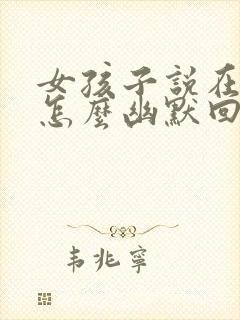 女孩子説在
怎麼幽默回
韦兆寧